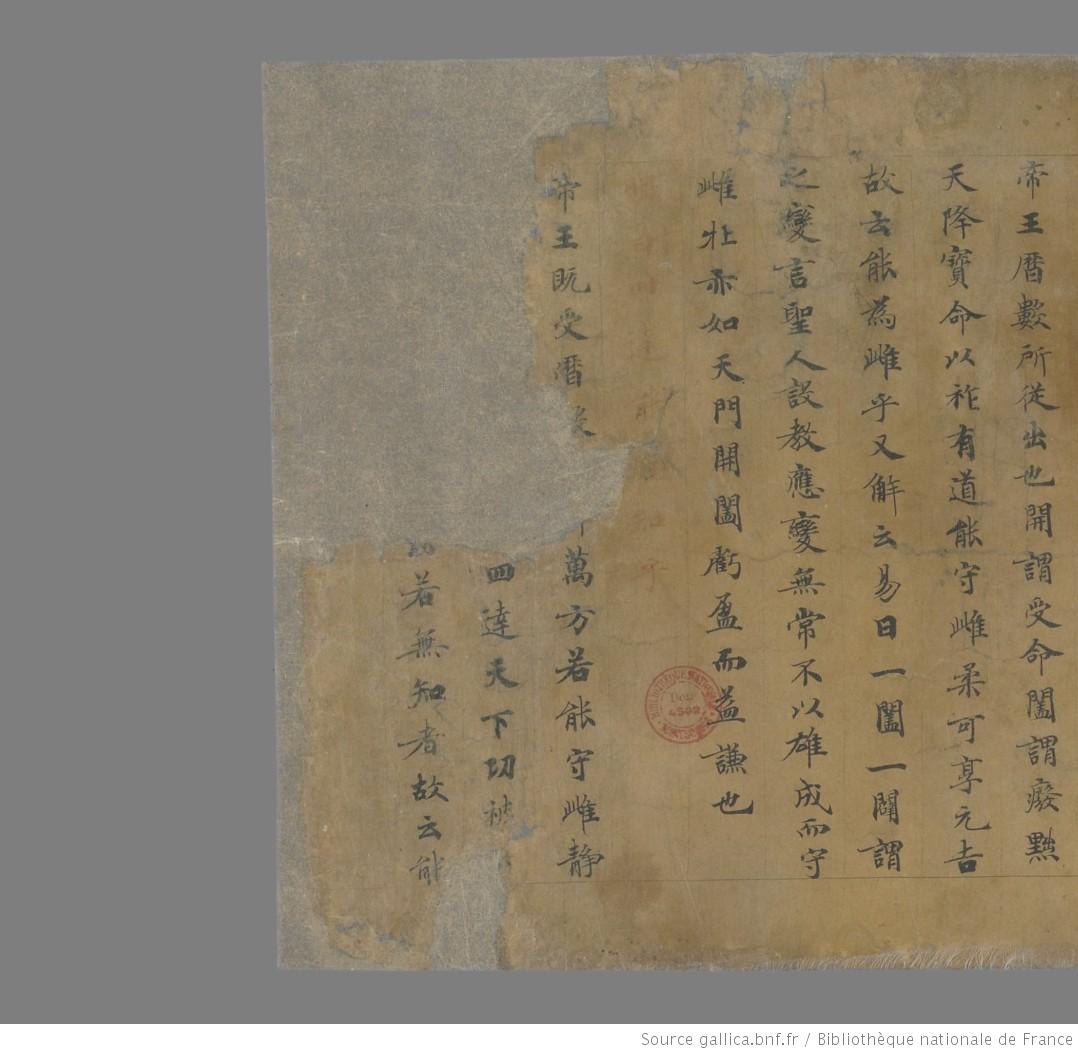 帝王暦數所從出也開謂受命闔謂癈黜
天降寶命以祚有道能守雌柔可享元吉
故云能為雌乎又解云易曰一闔一闢謂
之變言聖人設教應變無常不以雄成而守
雌牡亦如天門開闔虧盈而益謙也
明白四達能 知乎
帝王既受暦 萬方若能守雌静
四達天下功被
若無知者故云能
BIBLIOTHÈQUE NATIONALE
Don
4502
MANUSCRITS
Source gallica.bnf.fr / Bibliothèque nationale de France